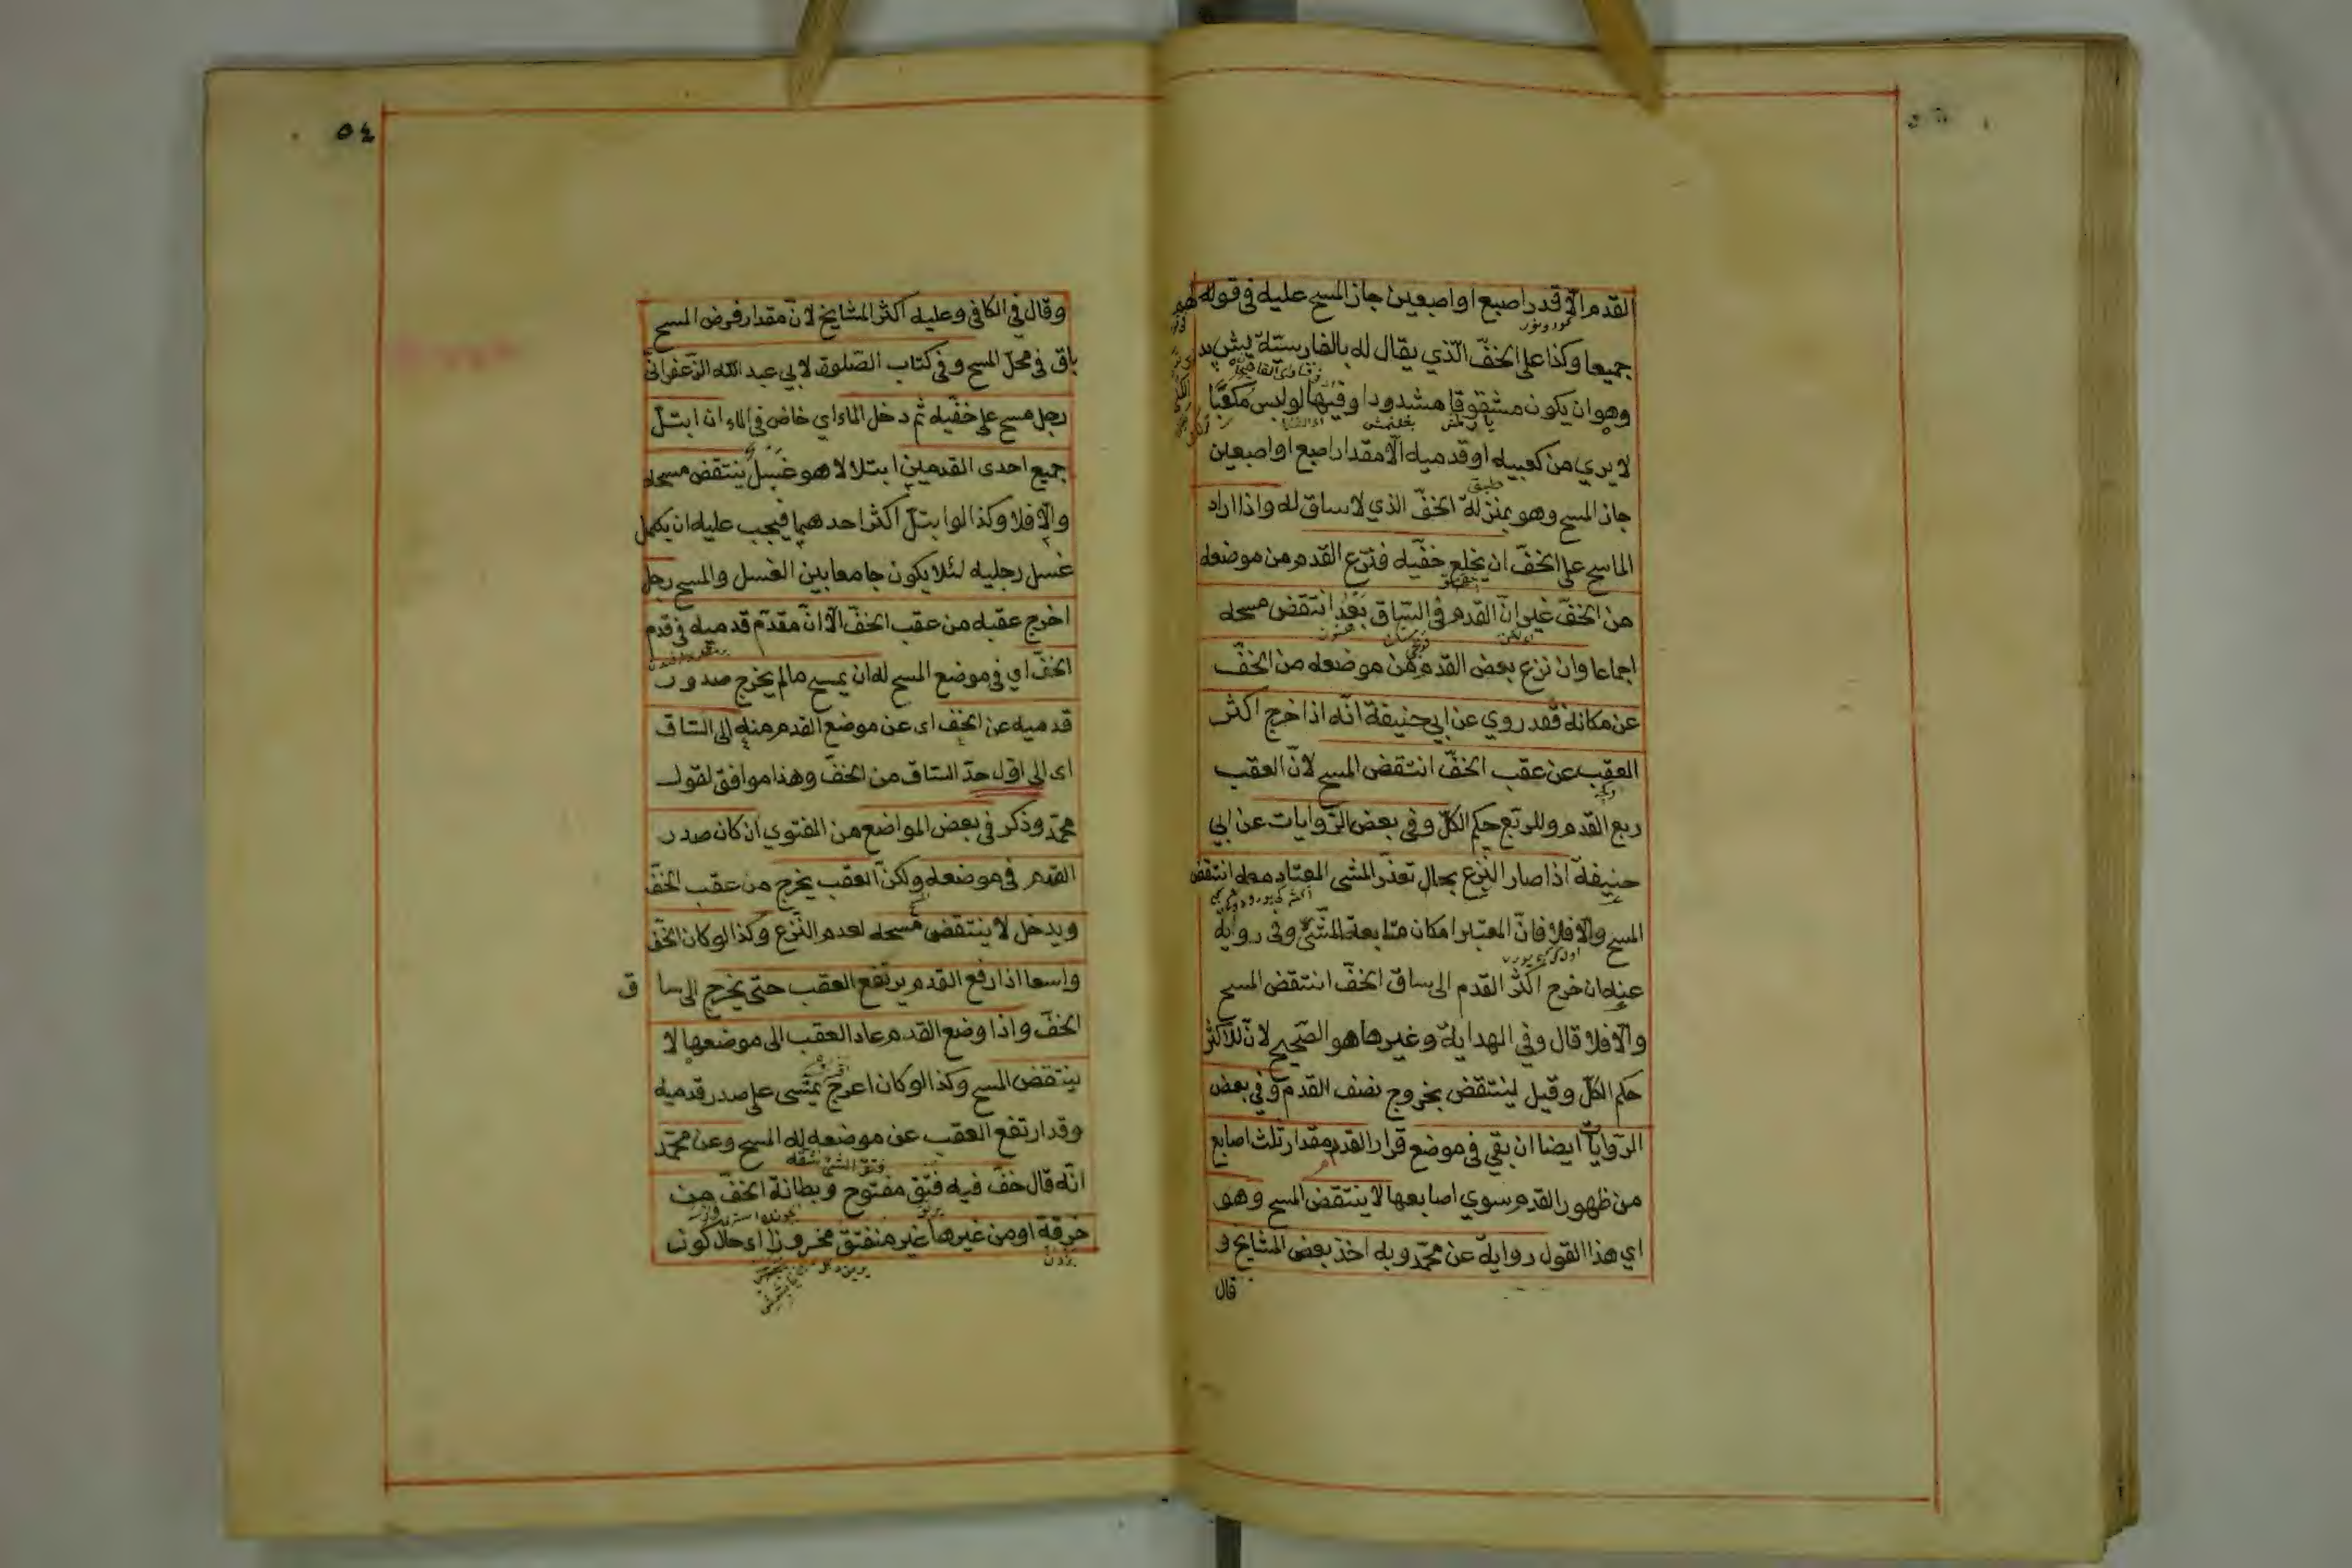 القدم الّا قدر اصبع او اصبعين جاز المسح عليه فى قولهم
جميعا وكذا على الخفّ الّذي يقال له بالفارسيّة پيش بد
وهو ان يكون مشقوقا مشدودا وفيها لو لبس مكعبّا
لا يري من كعبيه او قدميه الّا مقدار اصبع او اصبعين
جاز المسح وهو بمنزلة الخفّ الذي لا ساق له واذا اراد
الماسح على الخفّ ان يخلع خفّيه فنزع القدم من موضعه
من الخفّ غير انّ القدم فى السّاق بعد انتقض مسحه
اجماعا وان نزع بعض القدم من موضعه من الخفّ
عن مكانه فقد روي عن ابي حنيفة انّه اذا خرج اكثر
العقب عن عقب الخفّ انتقض المسح لانّ العقب
ربع القدم وللربّع حكم الكلّ وفى بعض الرّوايات عن ابي
حنيفة اذا صار النّزع بحال تعذّر المشى المعتاد معه انتقض
المسح والّا فلا فانّ المعتبر امكان متابعة المشىّ وفى رواية
عنه ان خرج اكثر القدم الى ساق الخفّ انتقض المسح
والّا فلا قال وفي الهداية وغيرها هو الصّحيح لانّ للاكثر
حكم الكلّ وقيل لينتقض بخروج نصف القدم وفى بعض
الرّوايات ايضا ان بقي فى موضع قرار القدم مقدار ثلث اصابع
من ظهور القدم سوي اصابعها لا ينتقض المسح وهو
اي هذا القول رواية عن محمّد وبه اخذ بعض المشايخ و
قال
٥٤
وقال في الكافي وعليه اكثر المشايخ لانّ مقدار فرض المسح
باق فى محلّ المسح وفى كتاب الصّلوة لابي عبد الله الزّعفرانّى
رجل مسح على خفّيه ثمّ دخل الماء اي خاض فى الماء ان ابتلّ
جميع احدى القدمين ابتلالا هو غسل ينتقض مسحه
والّا فلا وكذا لو ابتلّ اكثر احدهما فيجب عليه ان يكمل
غسل رجليه لئلا يكون جامعا بين الغسل والمسح رجل
اخرج عقبه من عقب الخفّ الّا انّ مقدّم قدميه فى قدم
الخفّ اي فى موضع المسح له ان يمسح ما لم يخرج صدور
قدميه عن الخفّ اى عن موضع القدم منه الى السّاق
اى الى اوّل حدّ السّاق من الخفّ وهذا موافق لقول
محمّد وذكر فى بعض المواضع من الفتوي ان كان صدر
القدم فى موضعه ولكنّ العقب يخرج من عقب الخفّ
ويدخل لا ينتقض مسحه لعدم النّزع وكذا لو كان الخفّ
واسعا اذا رفع القدم يرتفع العقب حتّى يخرج الى ساق
الخفّ واذا وضع القدم عاد العقب الى موضعها لا
ينتقض المسح وكذا لو كان اعرج يمشى على صدر قدميه
وقد ارتفع العقب عن موضعه له المسح وعن محمّد
انّه قال خفّ فيه فتق مفتوح وبطانة الخفّ من
خرقة او من غيرها غير منفتق مخروزا اى حال كون